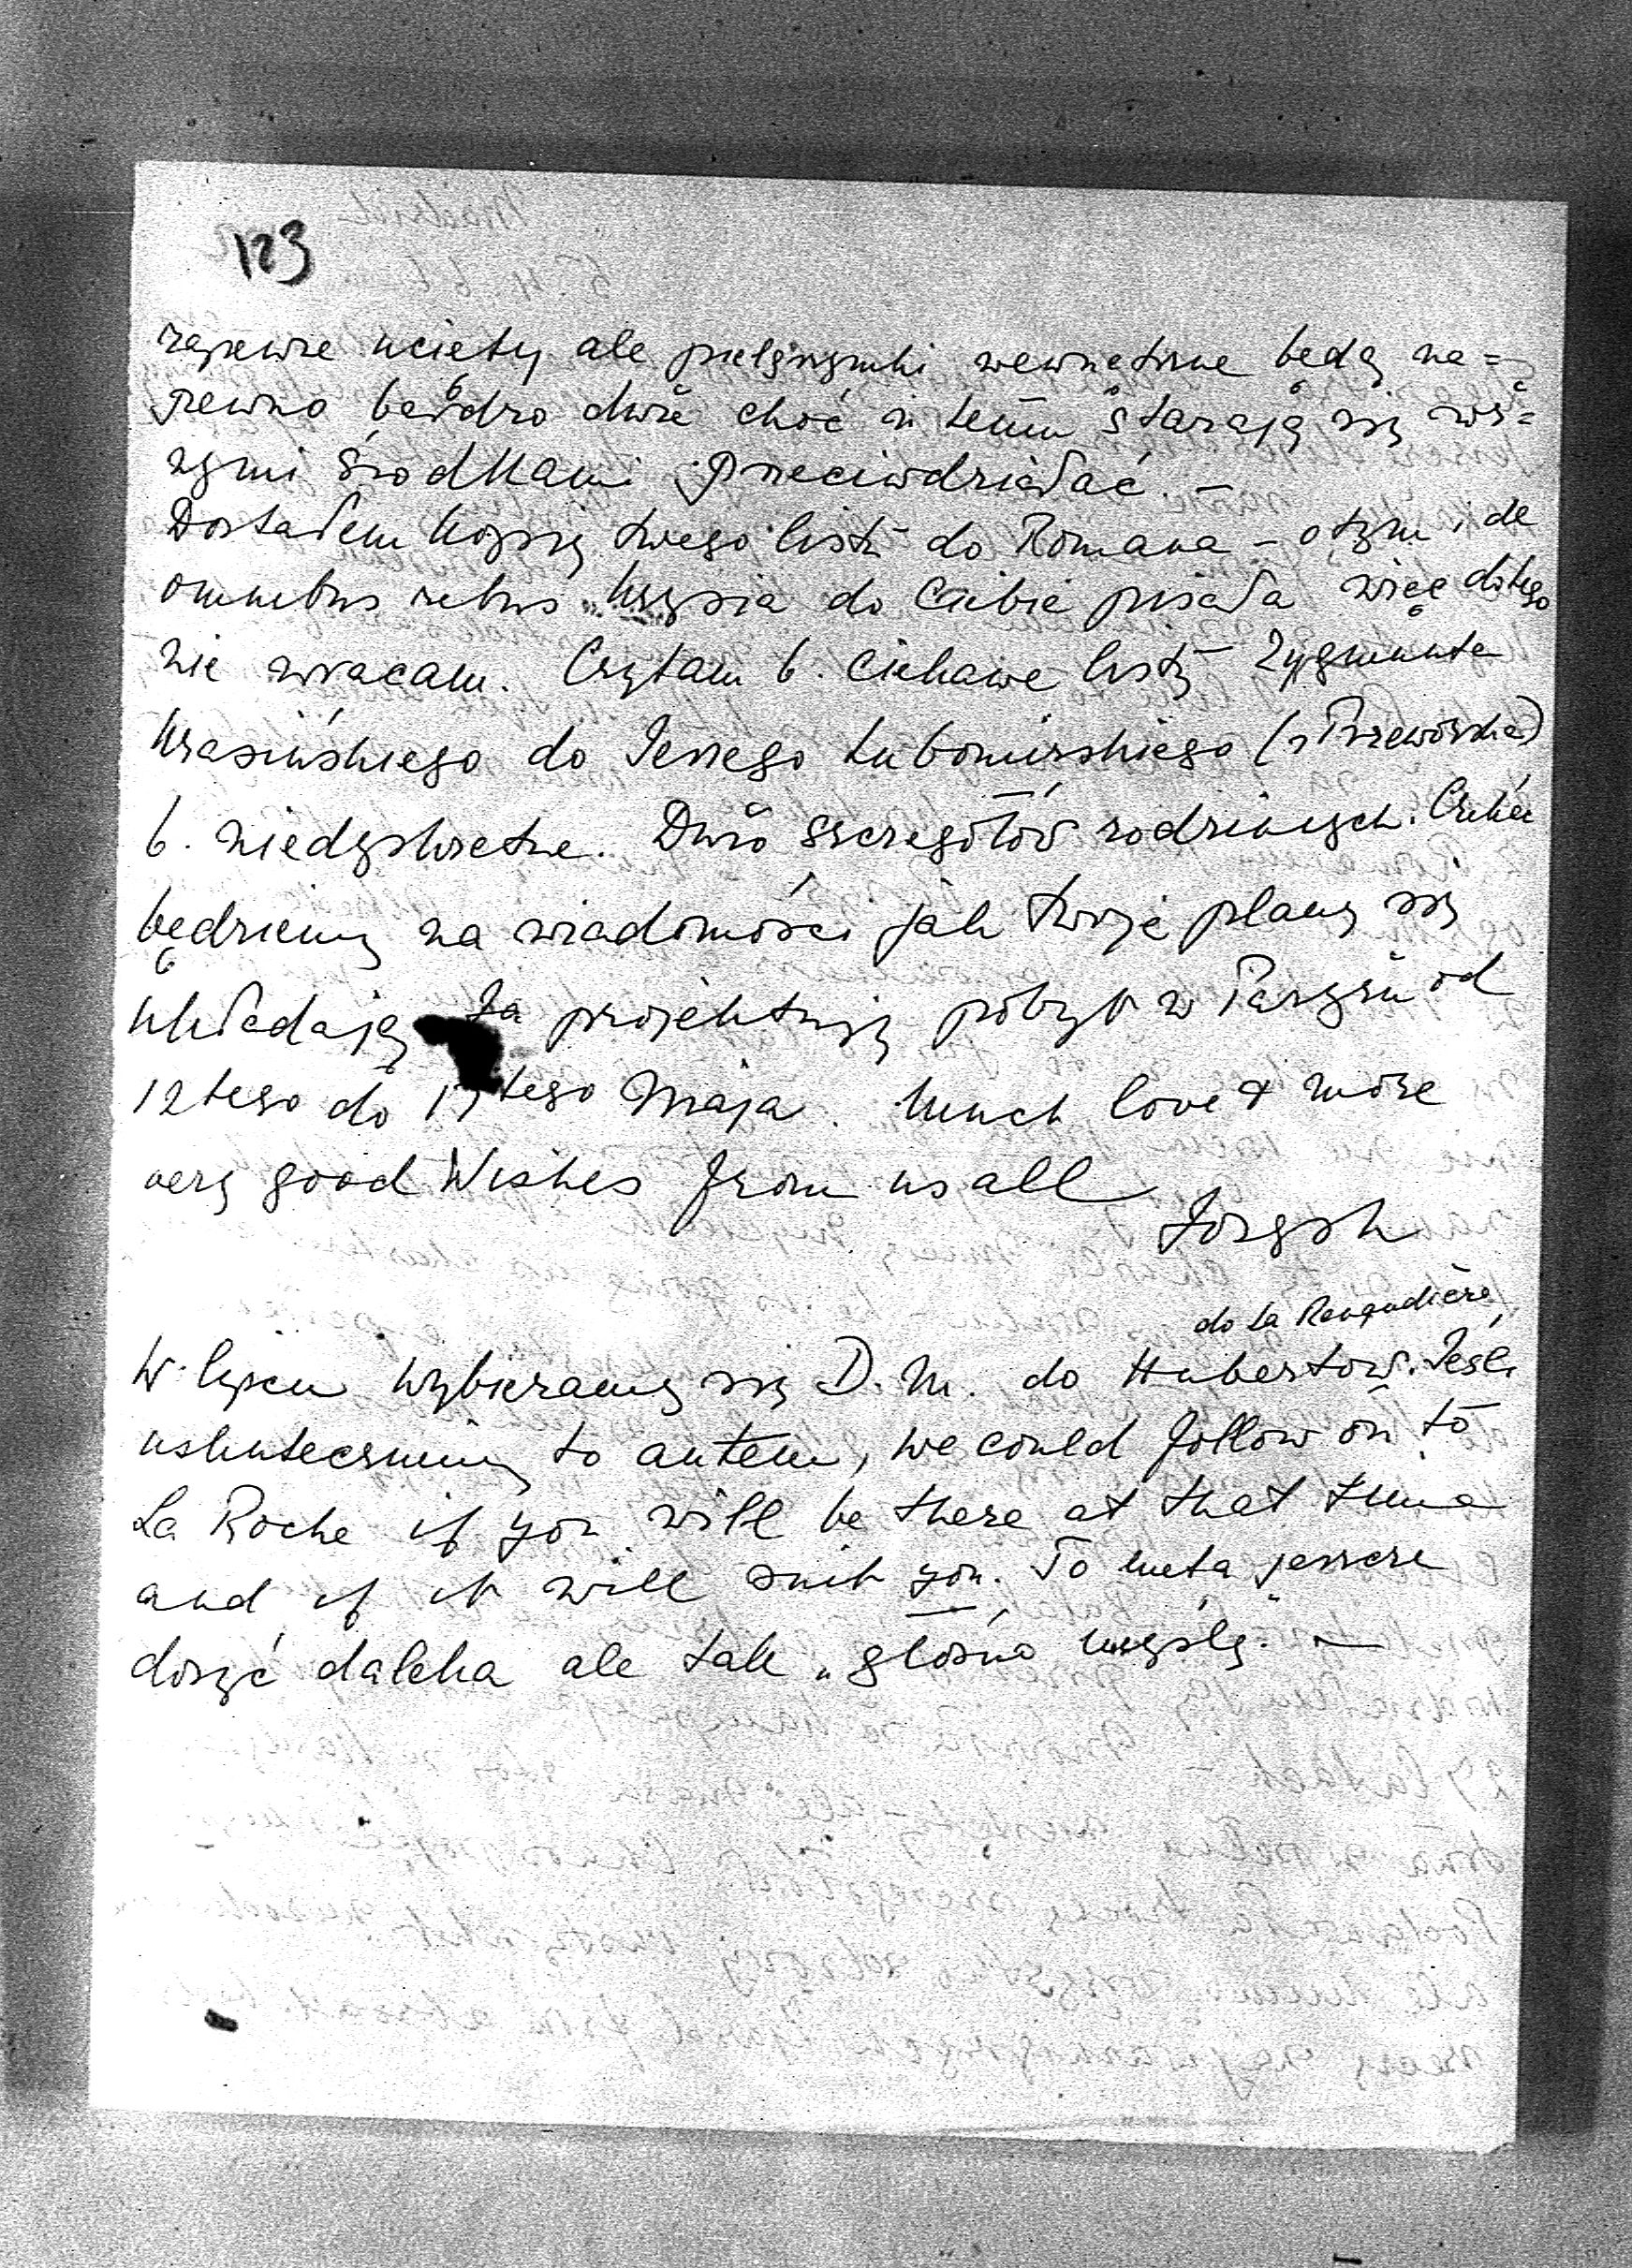 123
zapewne ucięty ale pielgrzymki wewnętrzne będą na=
pewno bardzo duże choć i temu starają się wś=
zymi środkami przeciwdziałać. –
Dostałem kopię twego listu do Romana – o tym i de
omnibus rebus Krysia do Ciebie pisała więc do tego
nie wracam. Czytam b. ciekawe listy Zygmunta
Krasińskiego do Jerzego Lubomirskiego (z Przeworska)
b. niedyskretne. Dużo szczegółów rodzinnych. Czekać
będziemy na wiadomości jak twoje plany się
układają. Ja projektuję pobyt w Paryżu od
12tego do 17tego Maja. Much love & more
very good Wishes from us all
Józyk
do La Renaudière
W lipcu wybieramy się D.M. do Hubertów. Jeśli
uskutecznimy to autem, we could follow on to
La Roche if you will be there at that time
and if it will suit you. To meta jeszcze
dosyć daleka ale tak „głośno myślę. —